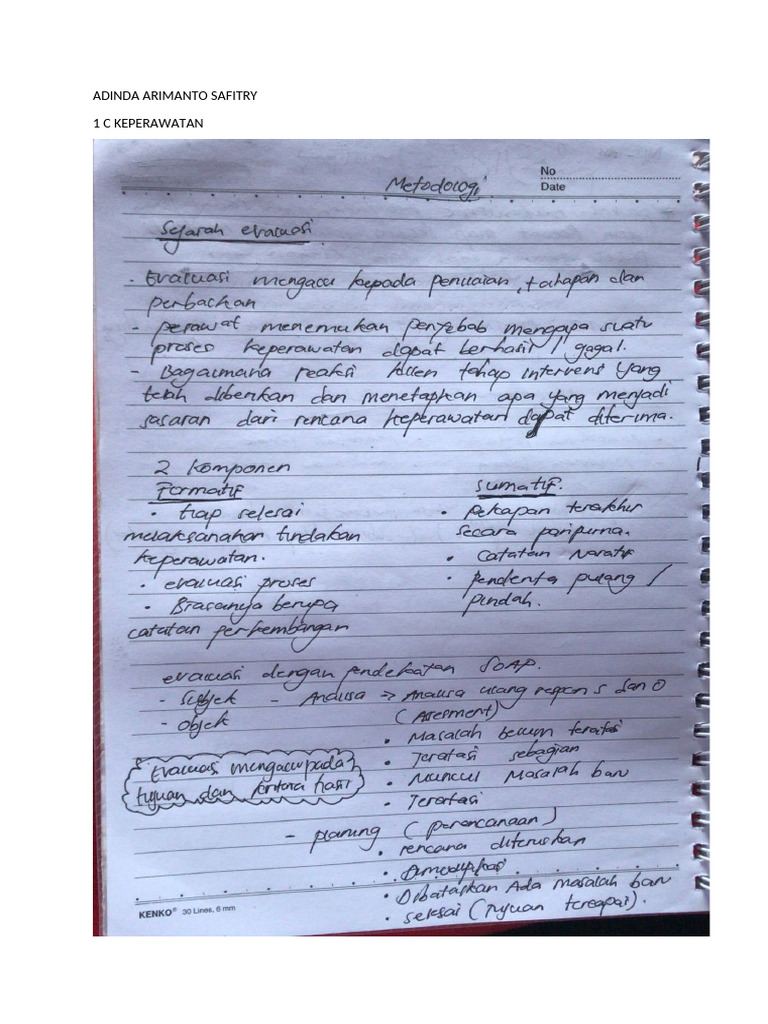 ADINDA ARIMANTO SAFITRY
1 C KEPERAWATAN
No
Metodologi
Date
Sejarah evaluasi
- Evaluasi mengacu kepada penilaian, tahapan dan
perbaikan
- perawat menemukan penyebab mengapa suatu
proses keperawatan dapat berhasil / gagal.
- Bagaimana reaksi klien tahap intervensi yang
telah diberikan dan menetapkan apa yang menjadi
sasaran dari rencana keperawatan dapat diterima.
2 komponen
Formatif
• tiap selesai
melaksanakan tindakan
keperawatan.
• evaluasi proses
• Biasanya berupa
catatan perkembangan
Sumatif.
• Rekapan terakhir
secara paripurna.
• Catatan Naratif
• Penderita pulang /
pindah.
evaluasi dengan pendekatan SOAP.
- Subjek - Analisa → Analisa ulang respon S dan O
- objek (Assesment)
• Masalah belum teratasi
• Teratasi sebagian
• Muncul Masalah baru
• Teratasi
Evaluasi mengacu pada
tujuan dan kriteria hasil
- planing (perencanaan)
• rencana diteruskan
• Dimodifikasi
• Dibatalkan Ada masalah baru
• selesai (Tujuan tercapai).
KENKO® 30 Lines, 6 mm